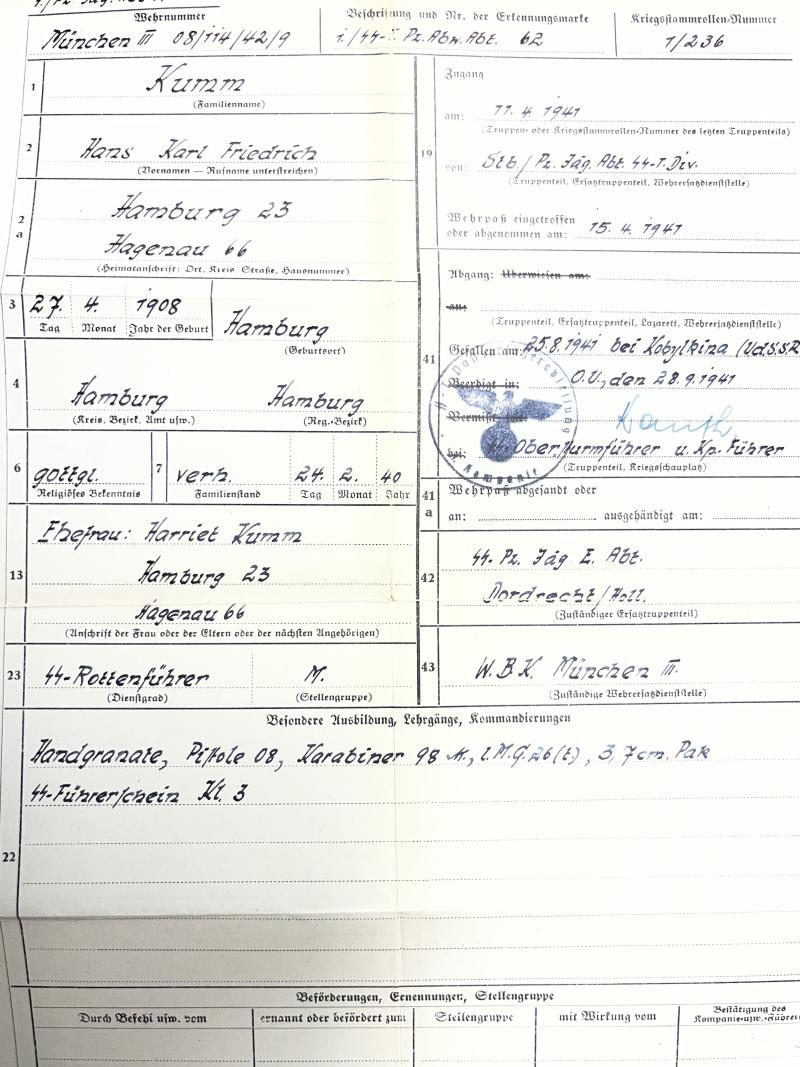 Wehrnummer
München III 08/114/42/9
Beschriftung und Nr. der Erkennungsmarke
1./SS-T. Pz. Abw. Abt. 62
Kriegsstammrollen-Nummer
1/236
1
Kumm
(Familienname)
2
Hans Karl Friedrich
(Vornamen — Rufname unterstreichen)
2 a
Hamburg 23
Hagenau 66
(Heimatanschrift: Ort, Kreis Straße, Hausnummer)
3
27. 4. 1908
Tag Monat Jahr der Geburt
Hamburg
(Geburtsort)
4
Hamburg Hamburg
(Kreis, Bezirk, Amt usw.) (Reg.-Bezirk)
6
gottgl.
Religiöses Bekenntnis
7
verh. 24. 2. 40
Familienstand Tag Monat Jahr
13
Ehefrau: Harriet Kumm
Hamburg 23
Hagenau 66
(Anschrift der Frau oder der Eltern oder der nächsten Angehörigen)
23
SS-Rottenführer M.
(Dienstgrad) (Stellengruppe)
19
Zugang
am: 11. 4. 1941
(Truppen- oder Kriegsstammrollen-Nummer des letzten Truppenteils)
von: Stb/Pz. Jäg. Abt. SS-T. Div.
(Truppenteil, Ersatztruppenteil, Wehrersatzdienststelle)
Wehrpaß eingetroffen
oder abgenommen am: 15. 4. 1941
41
Abgang: Überwiesen am:
an:
(Truppenteil, Ersatztruppenteil, Lazarett, Wehrersatzdienststelle)
Gefallen am: 25.8.1941 bei Kobylkina (UdSSR
Beerdigt in: O.U., den 28.9.1941
Vermißt seit:
bei: SS-Obersturmführer u. Kp.-Führer
(Truppenteil, Kriegsschauplatz)
Kompanie
41 a
Wehrpaß abgesandt oder
an: ausgehändigt am:
42
SS-Pz. Jäg. E. Abt.
Dordrecht/Holl.
(Zuständiger Ersatztruppenteil)
43
W.B.K. München III.
(Zuständige Wehrersatzdienststelle)
22
Besondere Ausbildung, Lehrgänge, Kommandierungen
Handgranate, Pistole 08, Karabiner 98 k., l.M.G.26(t), 3,7cm. Pak
SS-Führerschein Kl. 3
Beförderungen, Ernennungen, Stellengruppe
Durch Befehl usw. vom
ernannt oder befördert zum
Stellengruppe
mit Wirkung vom
Bestätigung des
Kompanie- usw.-Führers